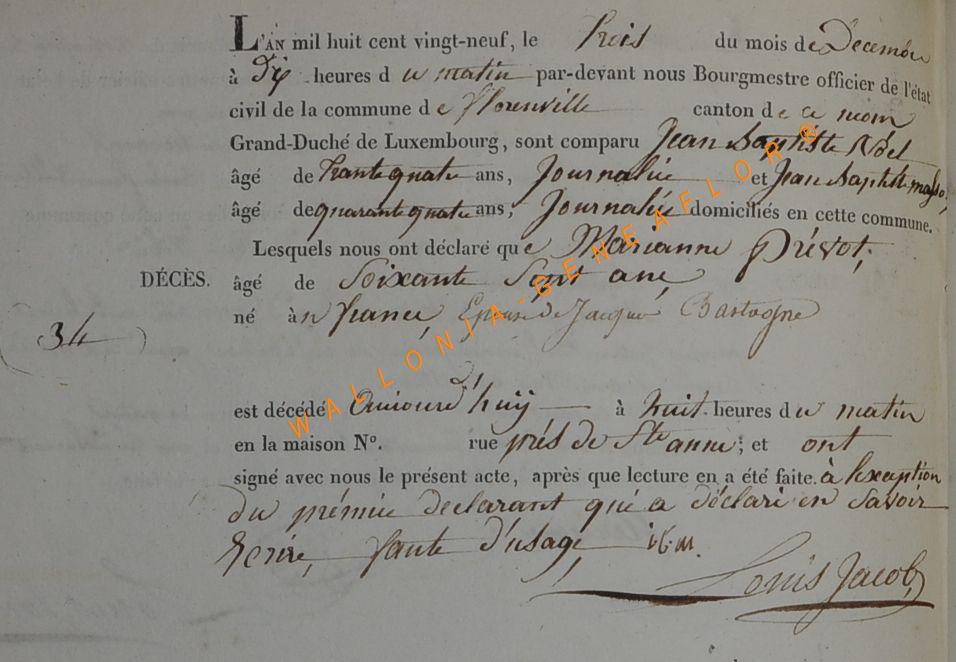 L'AN mil huit cent vingt-neuf, le trois du mois de Decembre
à Dix heures du matin par-devant nous Bourgmestre officier de l'état
civil de la commune de florenville canton de ce nom
Grand-Duché de Luxembourg, sont comparu Jean Baptiste Noël
âgé de trente quatre ans, Journalier et Jean Baptiste
âgé de quarante quatre ans, Journalier domiciliés en cette commune.
Lesquels nous ont déclaré que Marianne Prévot,
DÉCÈS. âgé de Soixante Sept ans,
né àn france, Epouse de Jacques Bastogne
34
est décédé aujourd'huy à huit heures du matin
en la maison N°. rue prés de Ste anne; et ont
signé avec nous le présent acte, après que lecture en a été faite. à lexception
du prémier declarant qui a déclaré en Savoir
Ecrire, faute d'usage
Louis Jacob
WALLONIA-BENEAFLOR©